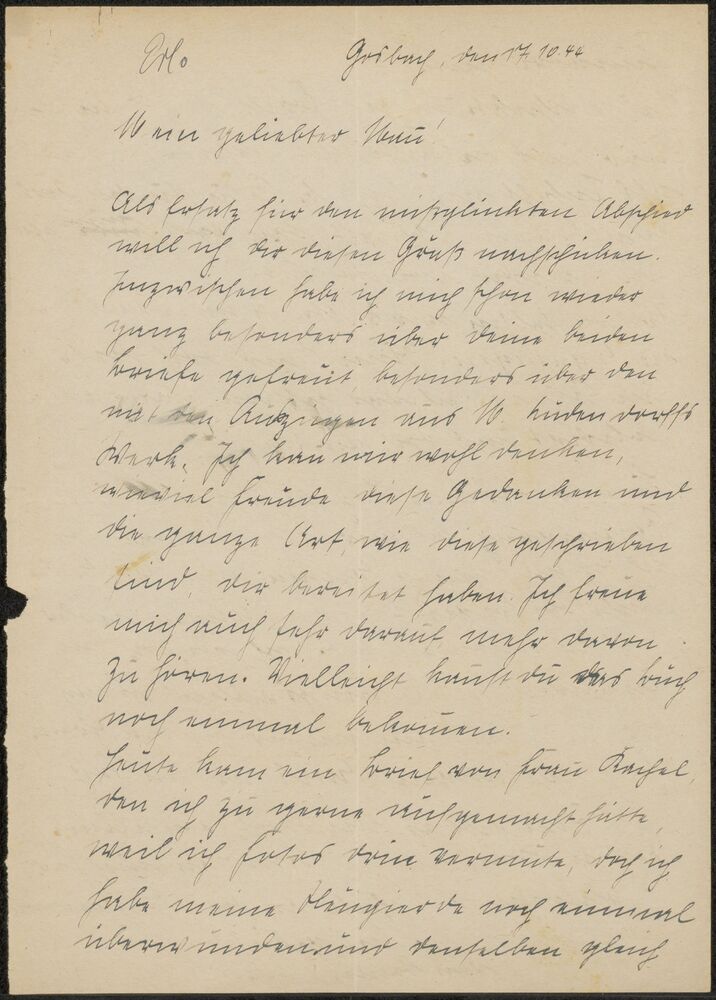 Gosbach, den 17.10.44
Mein geliebter Mann!
Als Ersatz für den mißglückten Abschied
will ich dir diesen Gruß nachschicken.
Inzwischen habe ich mich schon wieder
ganz besonders über deine beiden
Briefe gefreut, besonders über den
mit den Auszügen aus M. Ludendorffs
Werk. Ich kann mir wohl denken,
wieviel Freude diese Gedanken und
die ganze Art, wie diese geschrieben
sind, dir bereitet haben. Ich freue
mich auch sehr darauf mehr davon
zu hören. Vielleicht kannst du das Buch
noch einmal bekommen.
Heute kam ein Brief von Frau Kachel,
den ich zu gerne aufgemacht hätte,
weil ich Fotos drin vermute, doch ich
habe meine Neugierde noch einmal
überwunden und denselben gleich